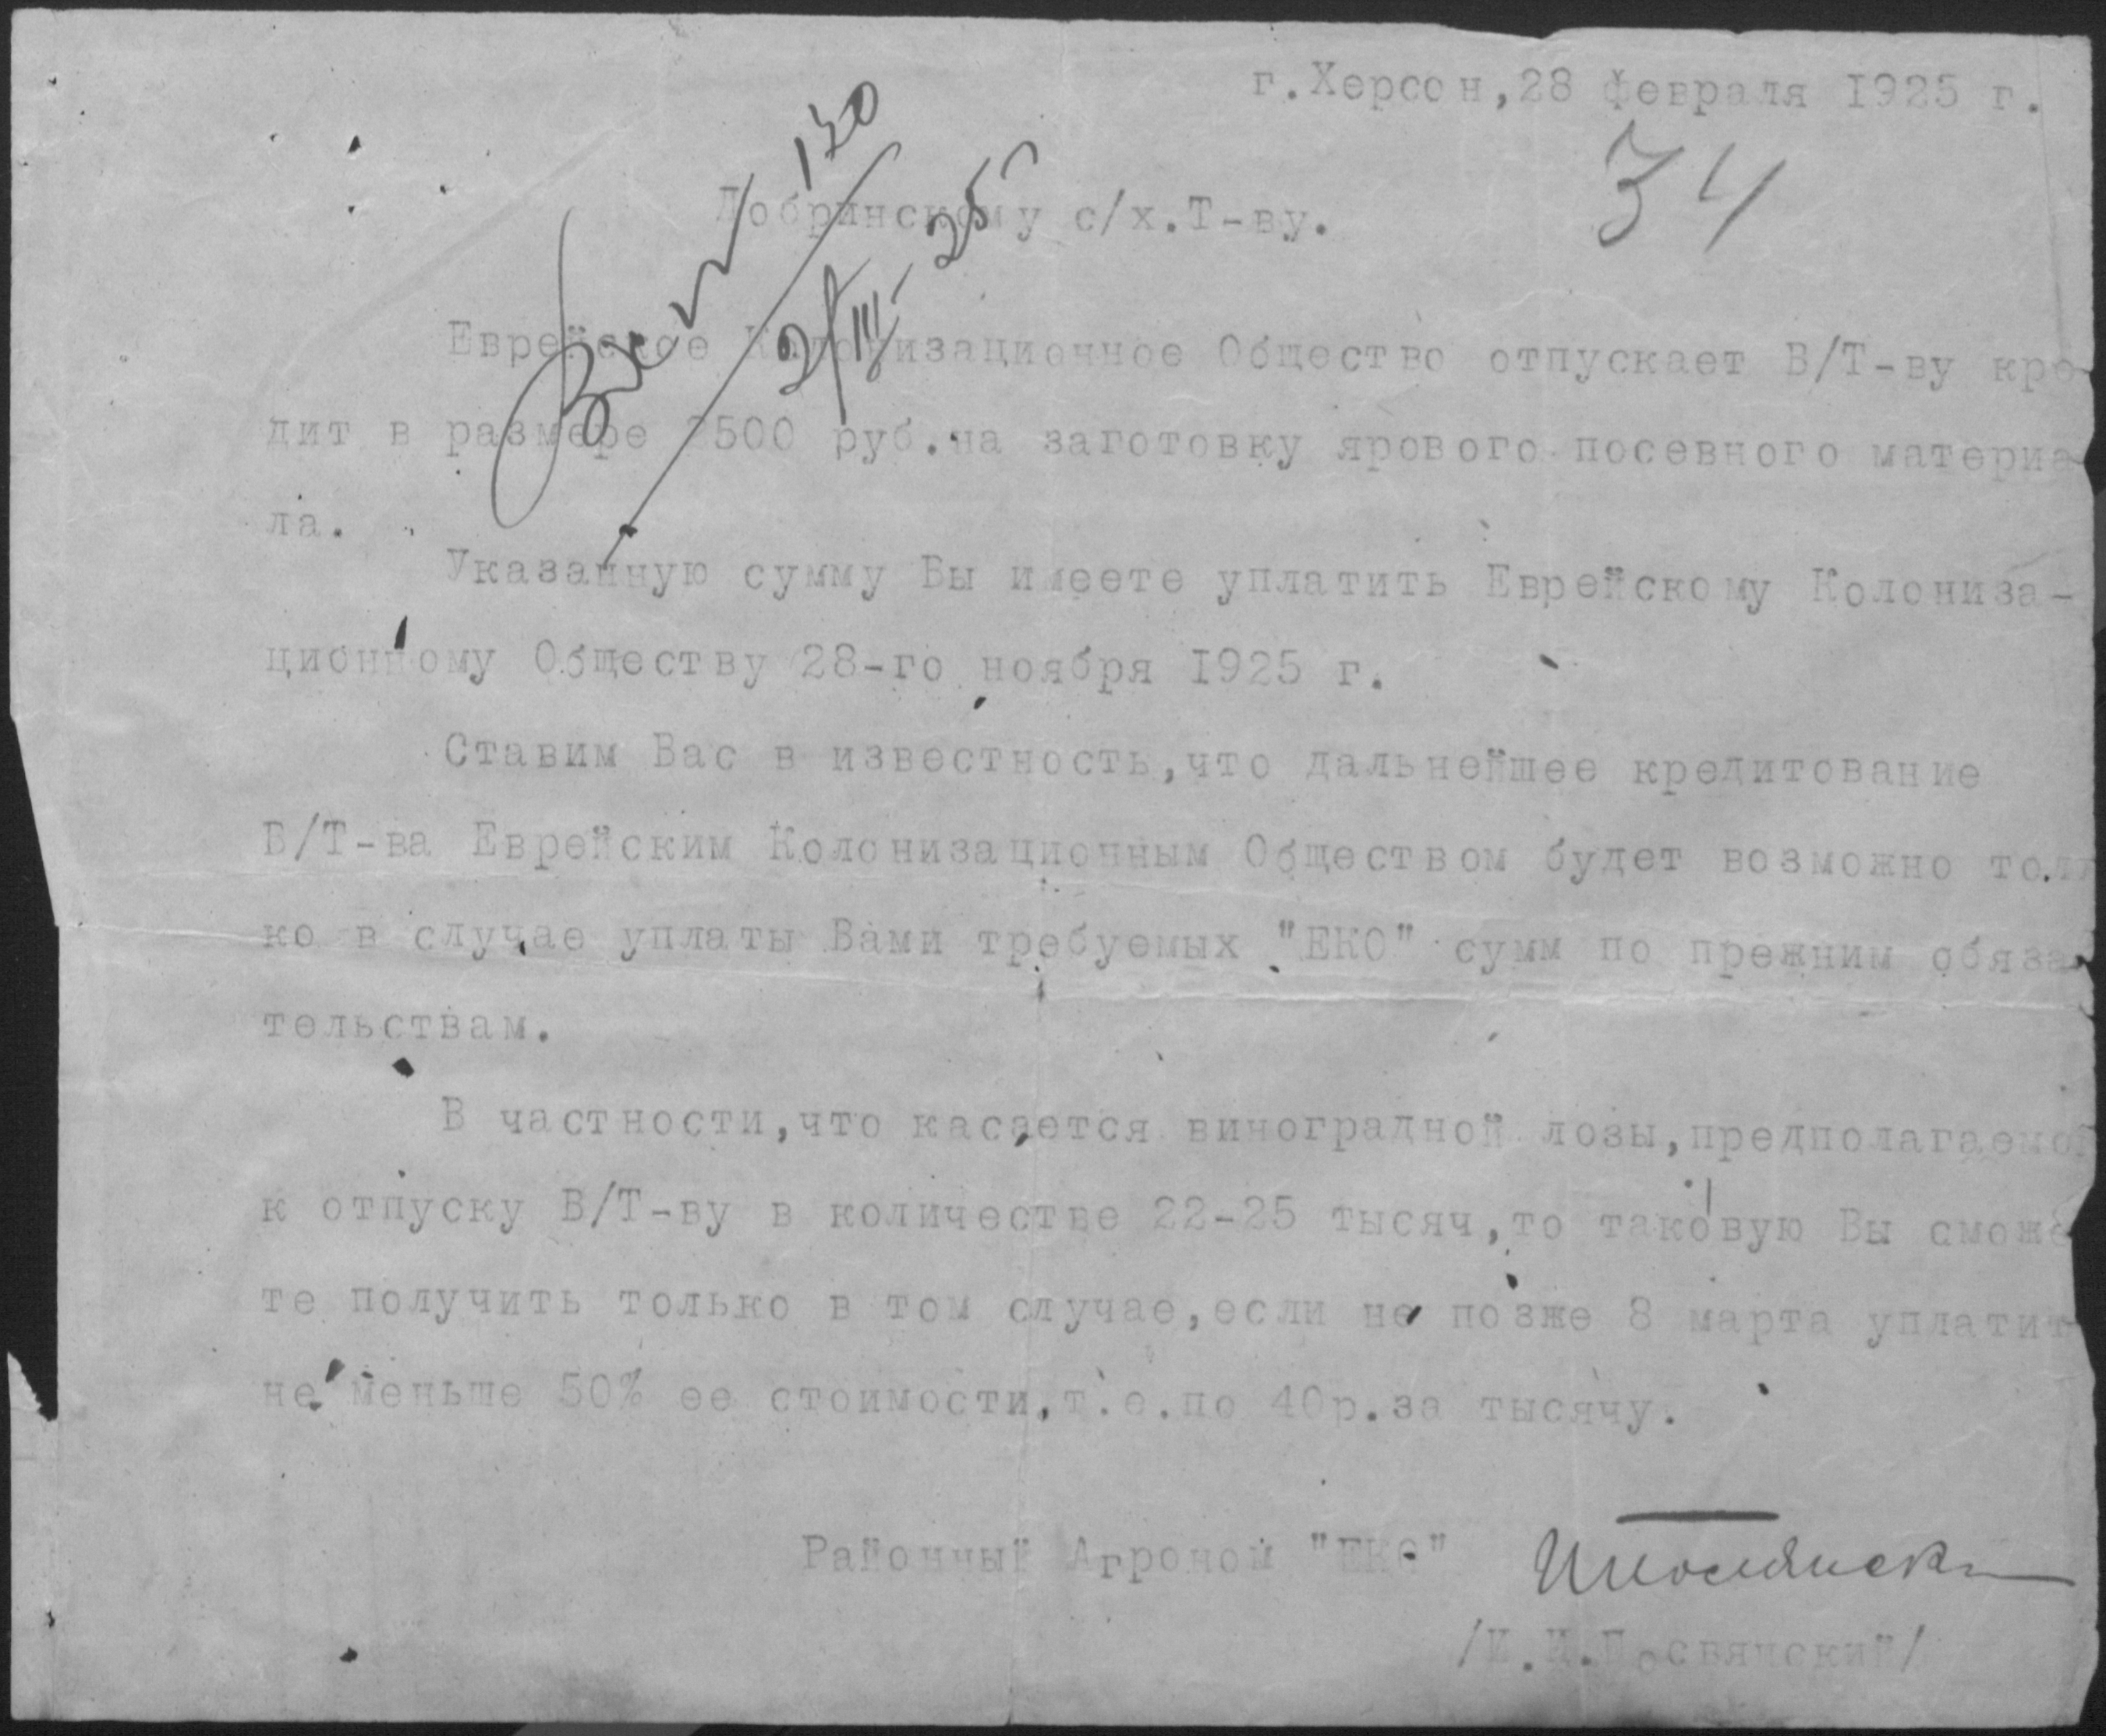 г.Херсон,28 февраля 1925 г.
34
130
2/III 25
Добринскому с/х.Т-ву.
Еврейское Колонизационное Общество отпускает В/Т-ву кре-
дит в размере 500 руб.на заготовку ярового посевного материа-
ла.
Указанную сумму Вы имеете уплатить Еврейскому Колониза-
ционному Обществу 28-го ноября 1925 г.
Ставим Вас в известность,что дальнейшее кредитование
В/Т-ва Еврейским Колонизационным Обществом будет возможно толь
ко в случае уплаты Вами требуемых "ЕКО" сумм по прежним обяза-
тельствам.
В частности,что касается виноградной лозы,предполагаемой
к отпуску В/Т-ву в количестве 22-25 тысяч,то таковую Вы сможе
те получить только в том случае,если не позже 8 марта уплатит
не меньше 50% ее стоимости,т.е.по 40р.за тысячу.
Районный Агроном "ЕКО"
/И.И.Посвянский/